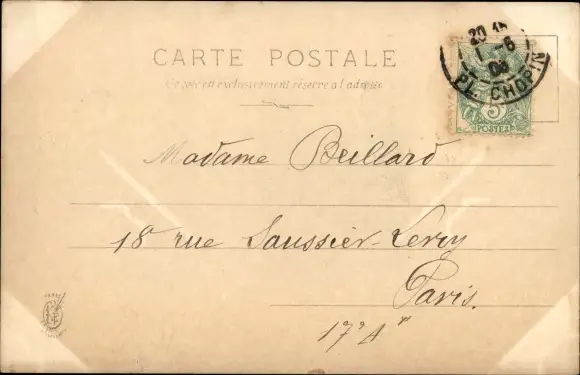 CARTE POSTALE
Ce côté est exclusivement réservé à l'adresse
20 15
1 -6
03
PL. CHOPIN
5
POSTES
Madame Beillard
18 rue Saussier-Leroy
Paris.
17e Art